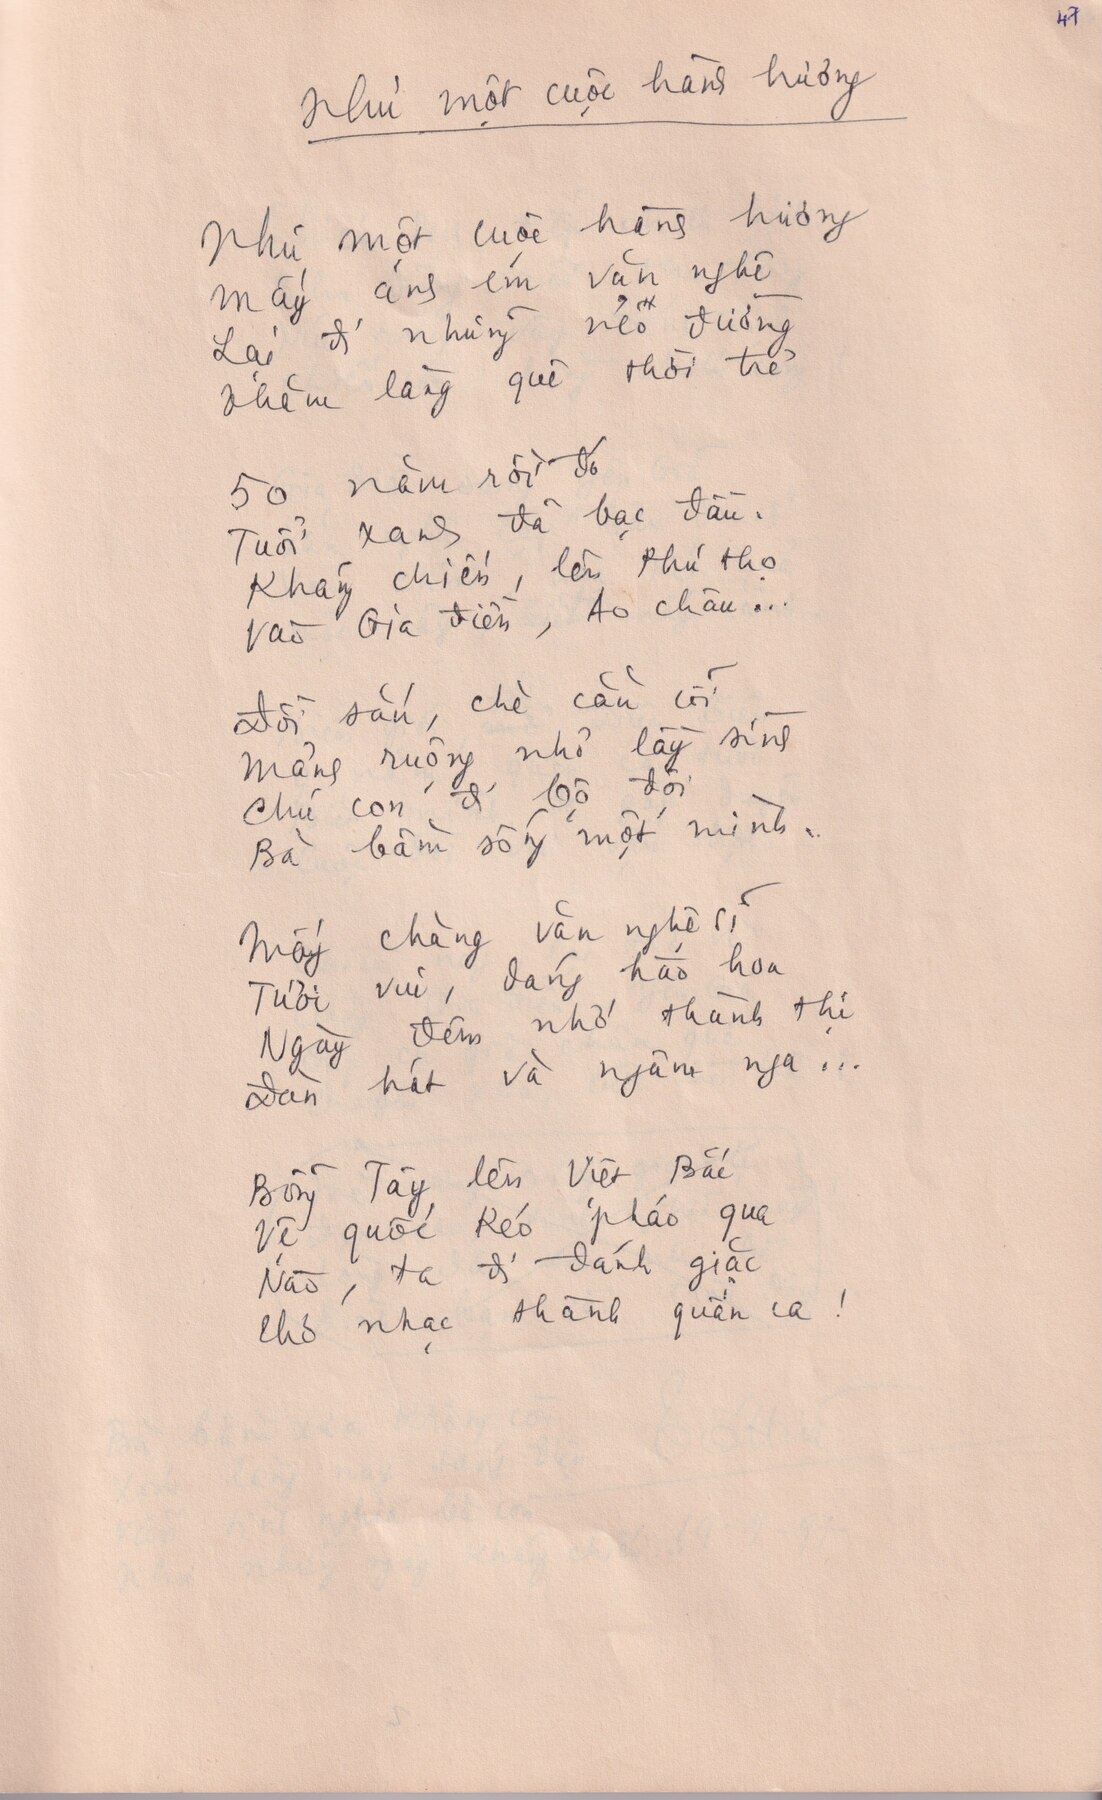 47
Như một cuộc hành hương
Như một cuộc hành hương
Mấy anh em văn nghệ
Lại đi những nẻo đường
Thăm làng quê thời trẻ
50 năm rồi đó
Tuổi xanh đã bạc đầu.
Kháng chiến, lên Phú Thọ
Vào Gia Điền, Ao Châu...
Đồi sắn, chè cằn cỗi
Mảnh ruộng nhỏ lầy sình
Chú con đi bộ đội
Bà bầm sống một mình..
Mấy chàng văn nghệ sĩ
Tươi vui, đang hào hoa
Ngày đêm nhớ thành thị
Đàn hát và ngâm nga...
Bỗng Tây lên Việt Bắc
Vệ quốc kéo pháo qua
Nào, ta đi đánh giặc
Cho nhạc thành quân ca!